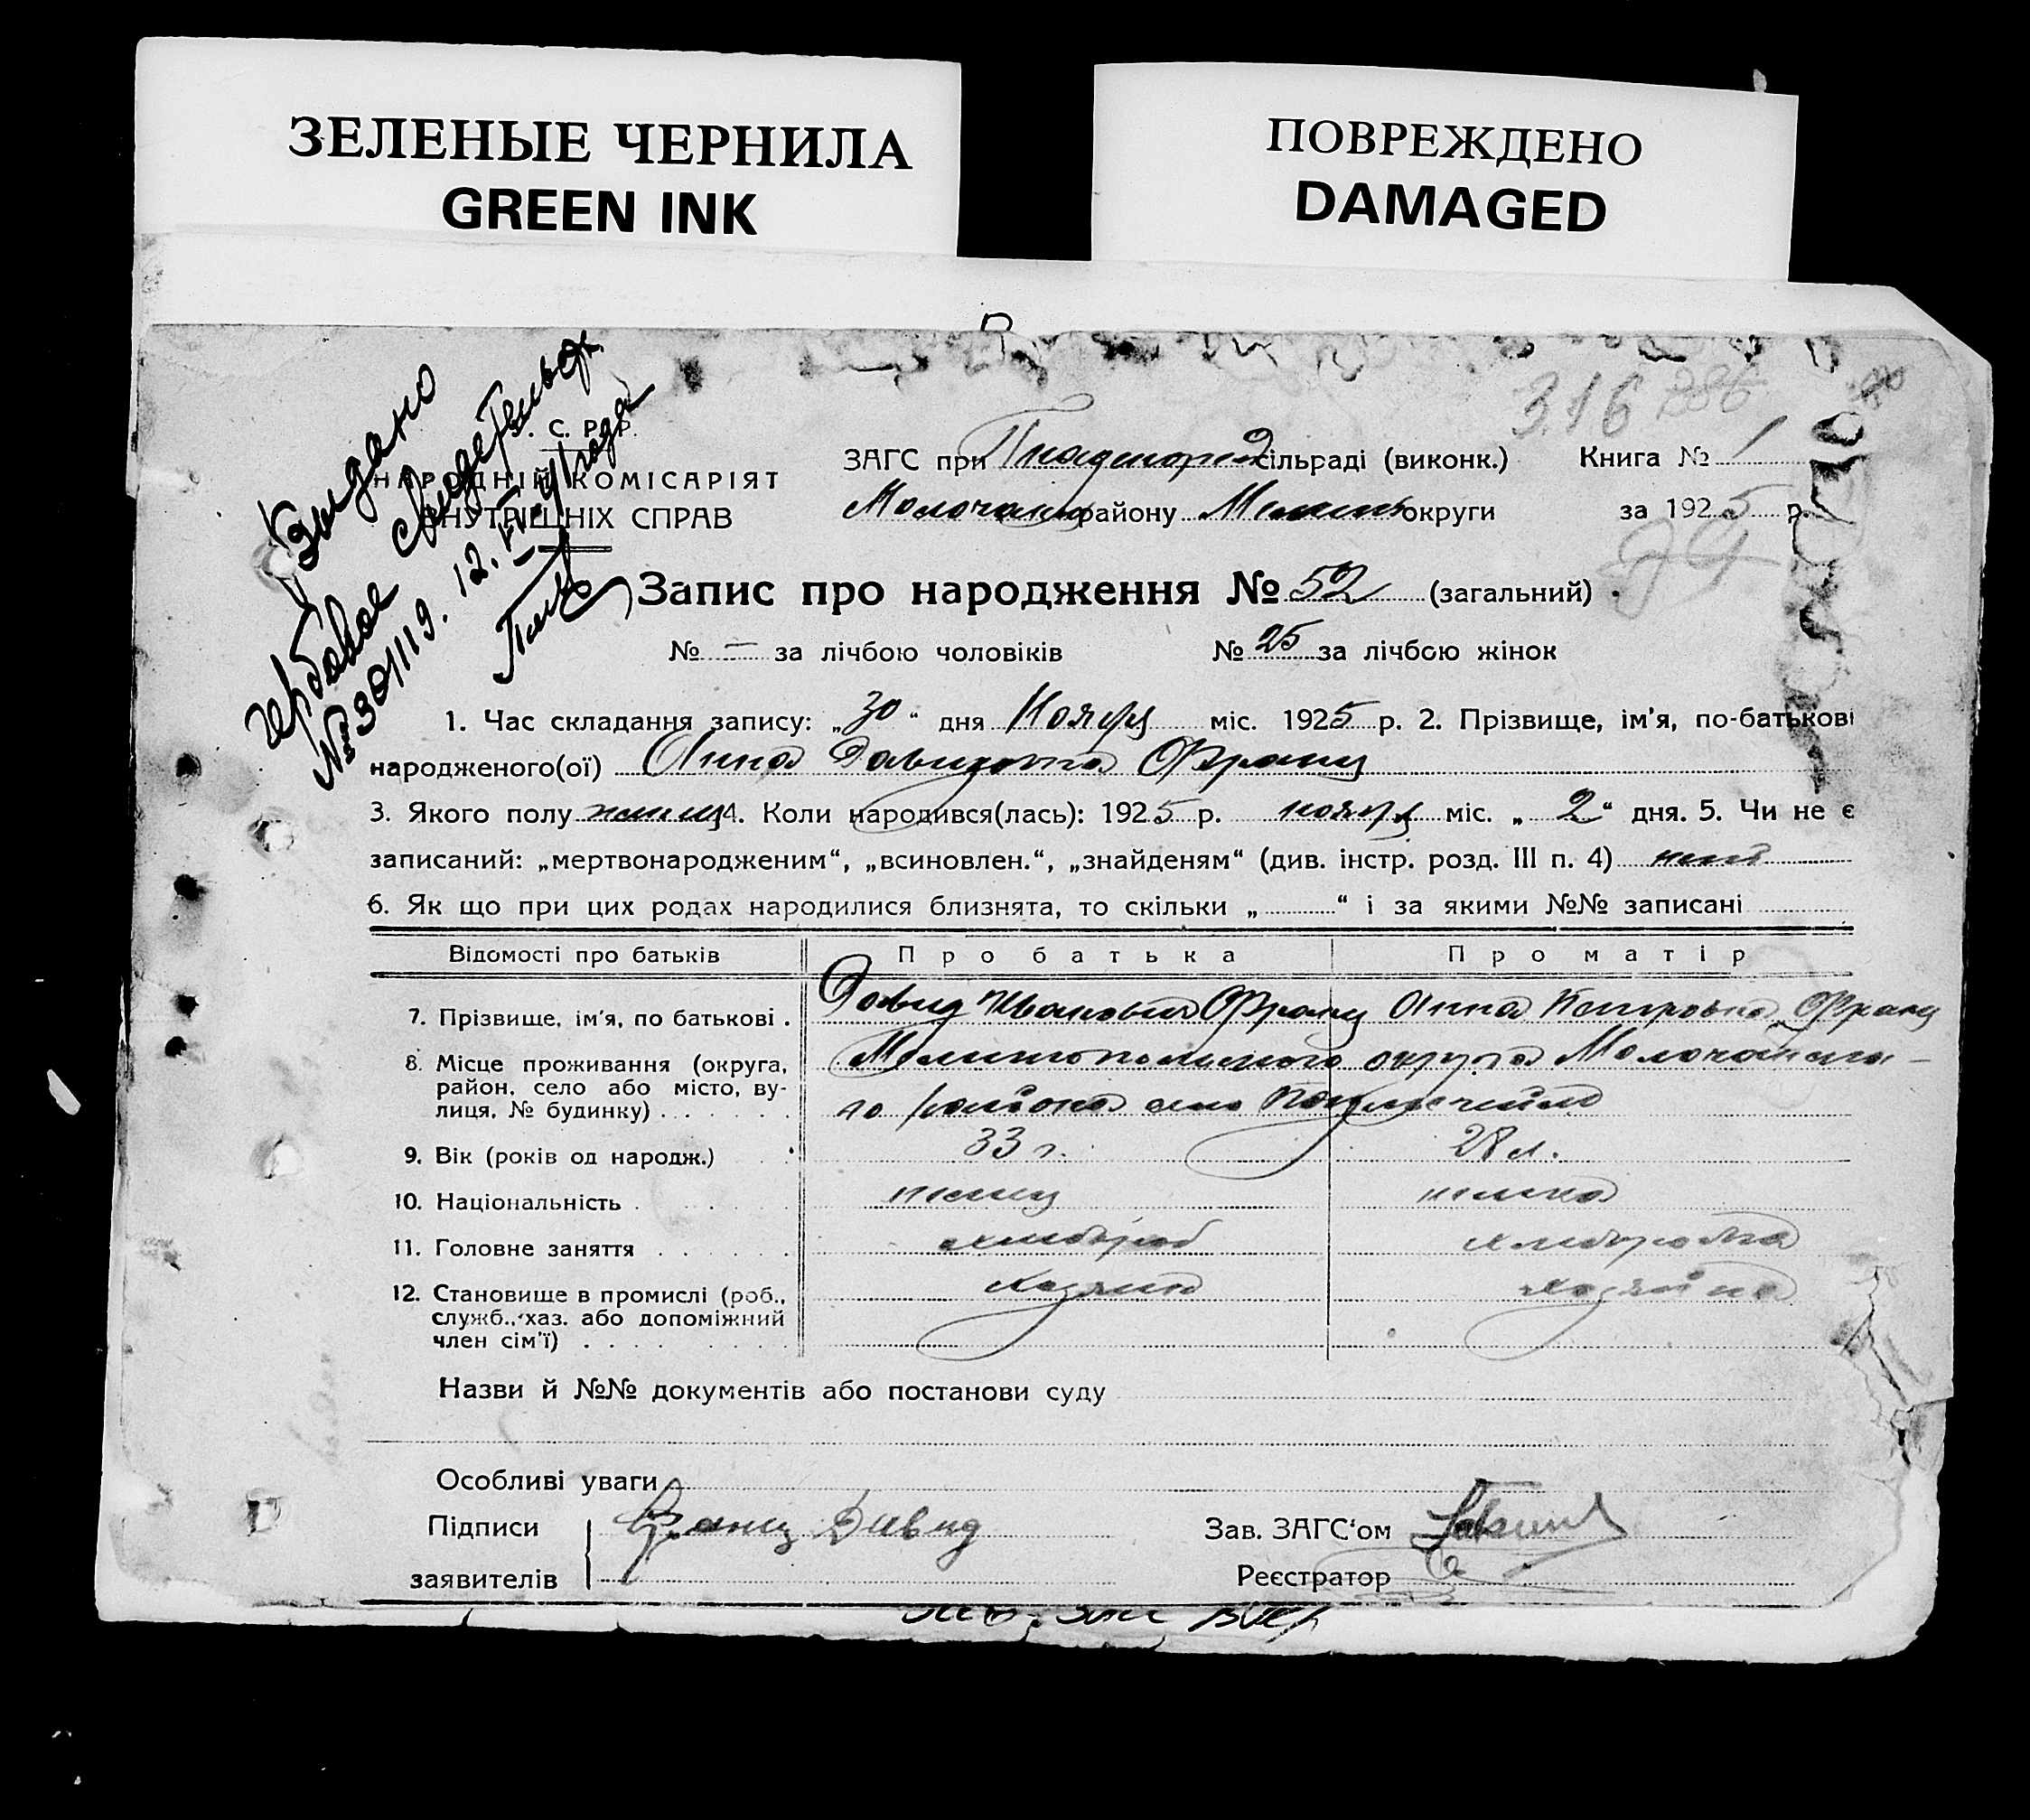 ЗЕЛЕНЫЕ ЧЕРНИЛА
GREEN INK
ПОВРЕЖДЕНО
DAMAGED
Выдано
гербовое свидетельст
№ 301119. 12. III-41 года
316 286
С. Р. Р.
НАРОДНІЙ КОМІСАРІЯТ
ВНУТРІШНІХ СПРАВ
ЗАГС при сільраді (виконк.) Книга № 1
Молочанс району Мелит округи за 1925 р.
Запис про народження № 52 (загальний)
№ — за лічбою чоловіків № 25 за лічбою жінок
1. Час складання запису: „30“ дня Ноября міс. 1925 р. 2. Прізвище, ім’я, по-батькові
народженого(ої) Анна Давидовна Франц
3. Якого полу женщ 4. Коли народився(лась): 1925 р. ноября міс. „2“ дня. 5. Чи не є
записаний: „мертвонародженим“, „всиновлен.“, „знайденям“ (див. інстр. розд. III п. 4) нет
6. Як що при цих родах народилися близнята, то скільки „ “ і за якими №№ записані
Відомості про батьків Про батька Про матір
7. Прізвище, ім’я, по батькові . Давид Иванович Франц Анна Петровна Франц
8. Місце проживання (округа, район, село або місто, вулиця, № будинку) Мелитопольского округа Молочанско-
го района село
9. Вік (років од народж.) 33 г. 28 л.
10. Національність немец немка
11. Головне заняття хлебороб хлеборобка
12. Становище в промислі (роб., служб., хаз. або допоміжний член сім’ї) хозяин хозяйка
Назви й №№ документів або постанови суду
Особливі уваги
Підписи Франц Давид Зав. ЗАГС‘ом
заявителів Реєстратор